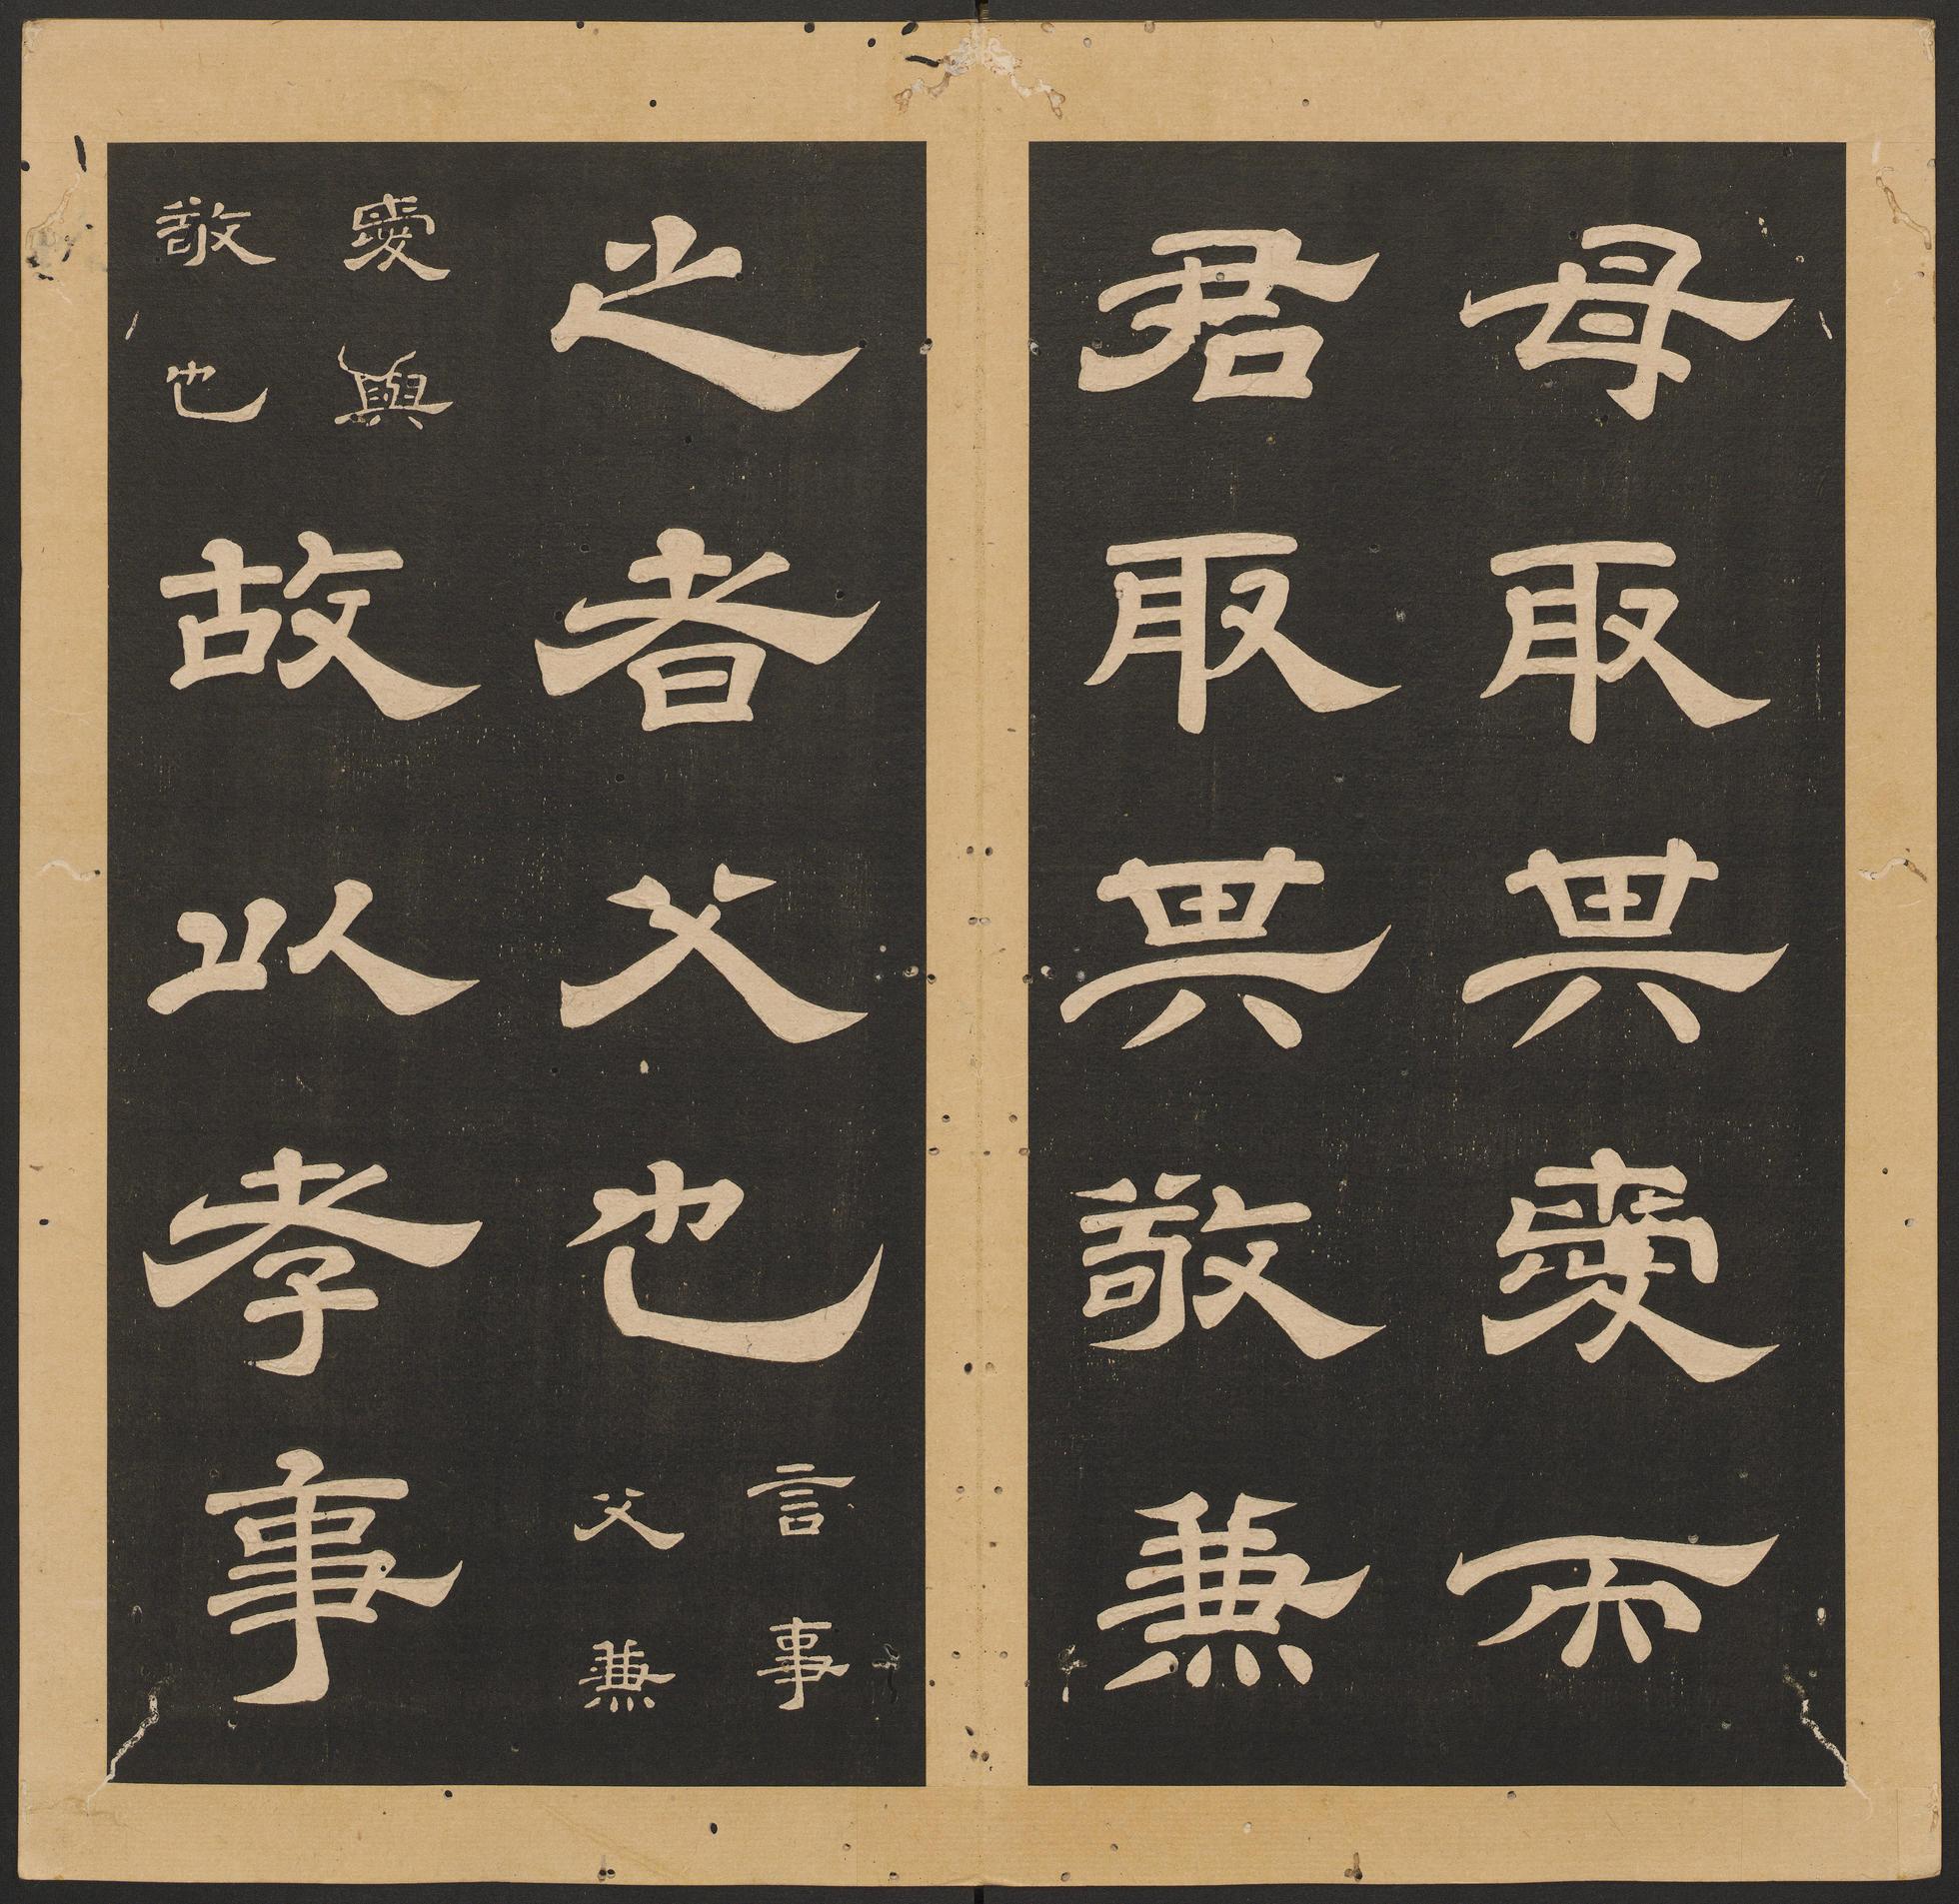 母取其愛而
君取其敬兼
之者父也言事
父兼
愛與
敬也故以孝事